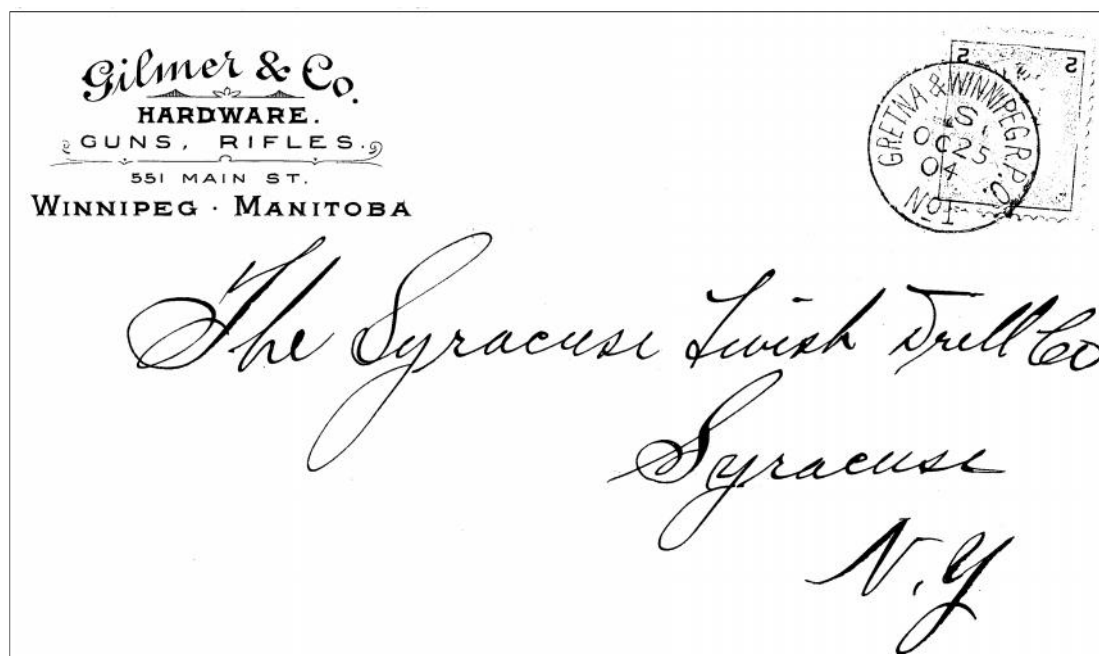 Gilmer & Co.
HARDWARE.
GUNS, RIFLES.
551 MAIN ST.
WINNIPEG · MANITOBA
2 2
GRETNA & WINNIPEG R.P.O.
S.
OC 25
04
No 1
The Syracuse Twish Drell Co
Syracuse
N.Y